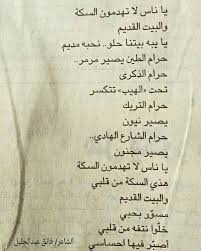 يا ناس لا تهدمون السكة
والبيت القديم
يا يبه بيتنا حلو.. نحبه مديم
حرام الطين يصير مرمر..
حرام الذكرى
تحت «الهيب» تتكسر
حرام التريك
يصير نيون
حرام الشارع الهادي..
يصير مجنون
يا ناس لا تهدمون السكة
هذي السكة من قلبي
مسوّر بحبي
خلّوا نتفه من قلبي
أصبّر فيها احساسي
الشاعر/ فائق عبدالجليل